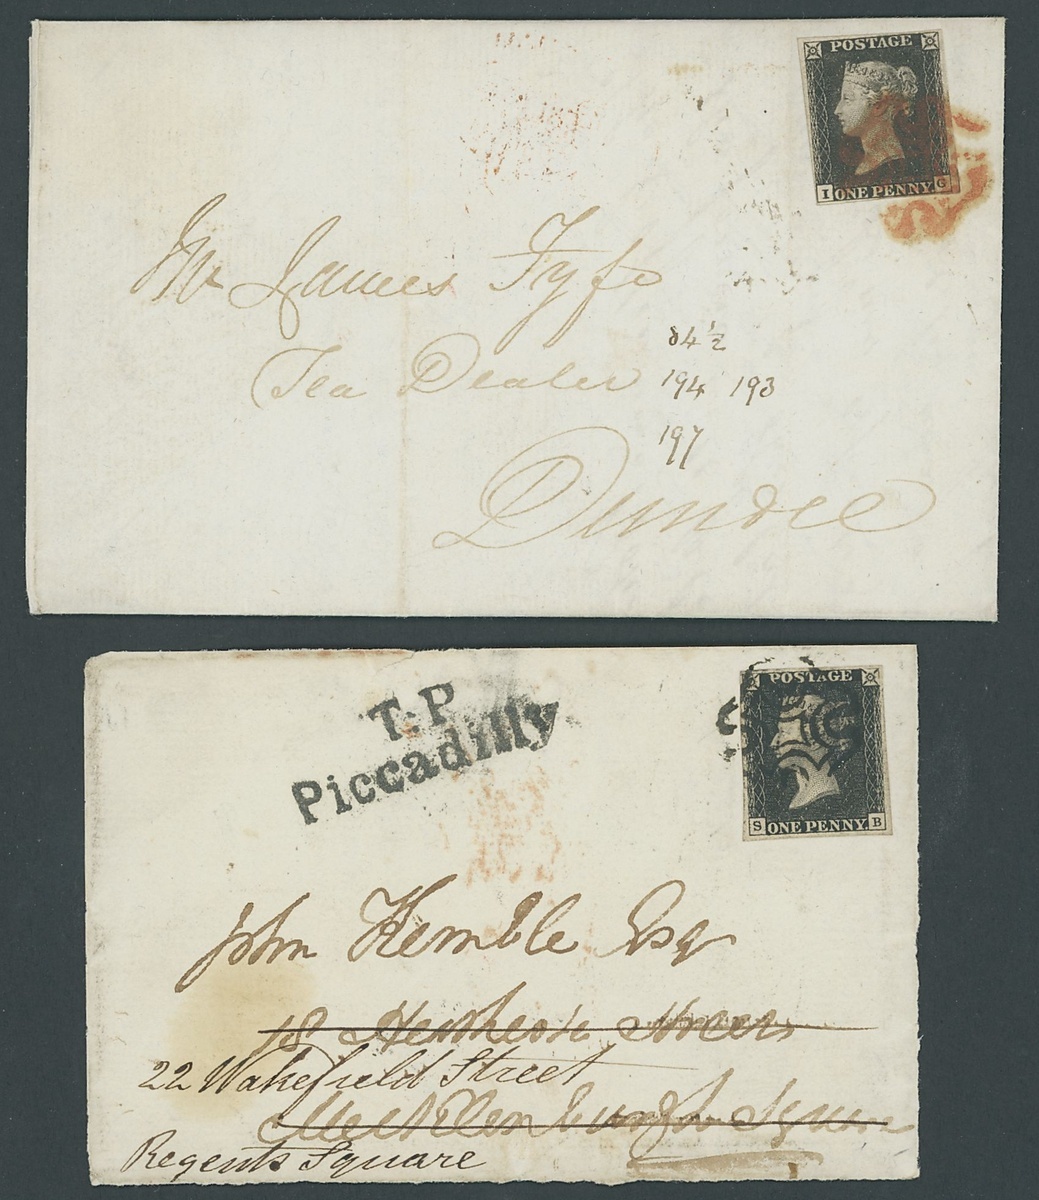 POSTAGE
I ONE PENNY G
Mr James Fyfe
84½
Tea Dealer 194 193
197
Dundee
T.P
Piccadilly
POSTAGE
S ONE PENNY. B
John Kemble Esqr
18
22 Wakefield Street
Mecklenburgh Square
Regents Square